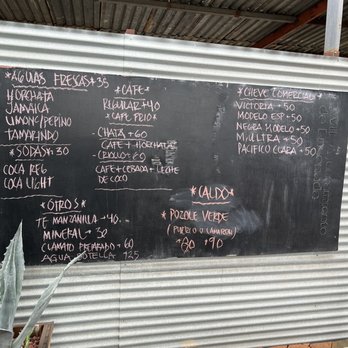 *AGUAS FRESCAS* 35
HORCHATA
JAMAICA
LIMON/PEPINO
TAMARINDO
*SODAS* 30
COCA REG
COCA LIGHT
*CAFE*
REGULAR *40
*CAFE FRIO*
- CHATA *60
CAFE + HORCHATA
- CRIOLLO *60
CAFE + CEBADA + LECHE
DE COCO
*CHEVE COMERCIAL*
VICTORIA *50
MODELO ESP *50
NEGRA MODELO *50
M. ULTRA *50
PACIFICO CLARA *50
*OTROS*
TE MANZANILLA *40
MINERAL * 30
CLAMATO PREPARADO *60
AGUA BOTELLA *25
*CALDO*
* POZOLE VERDE
(PUERCO O CAMARON)
*80 *90